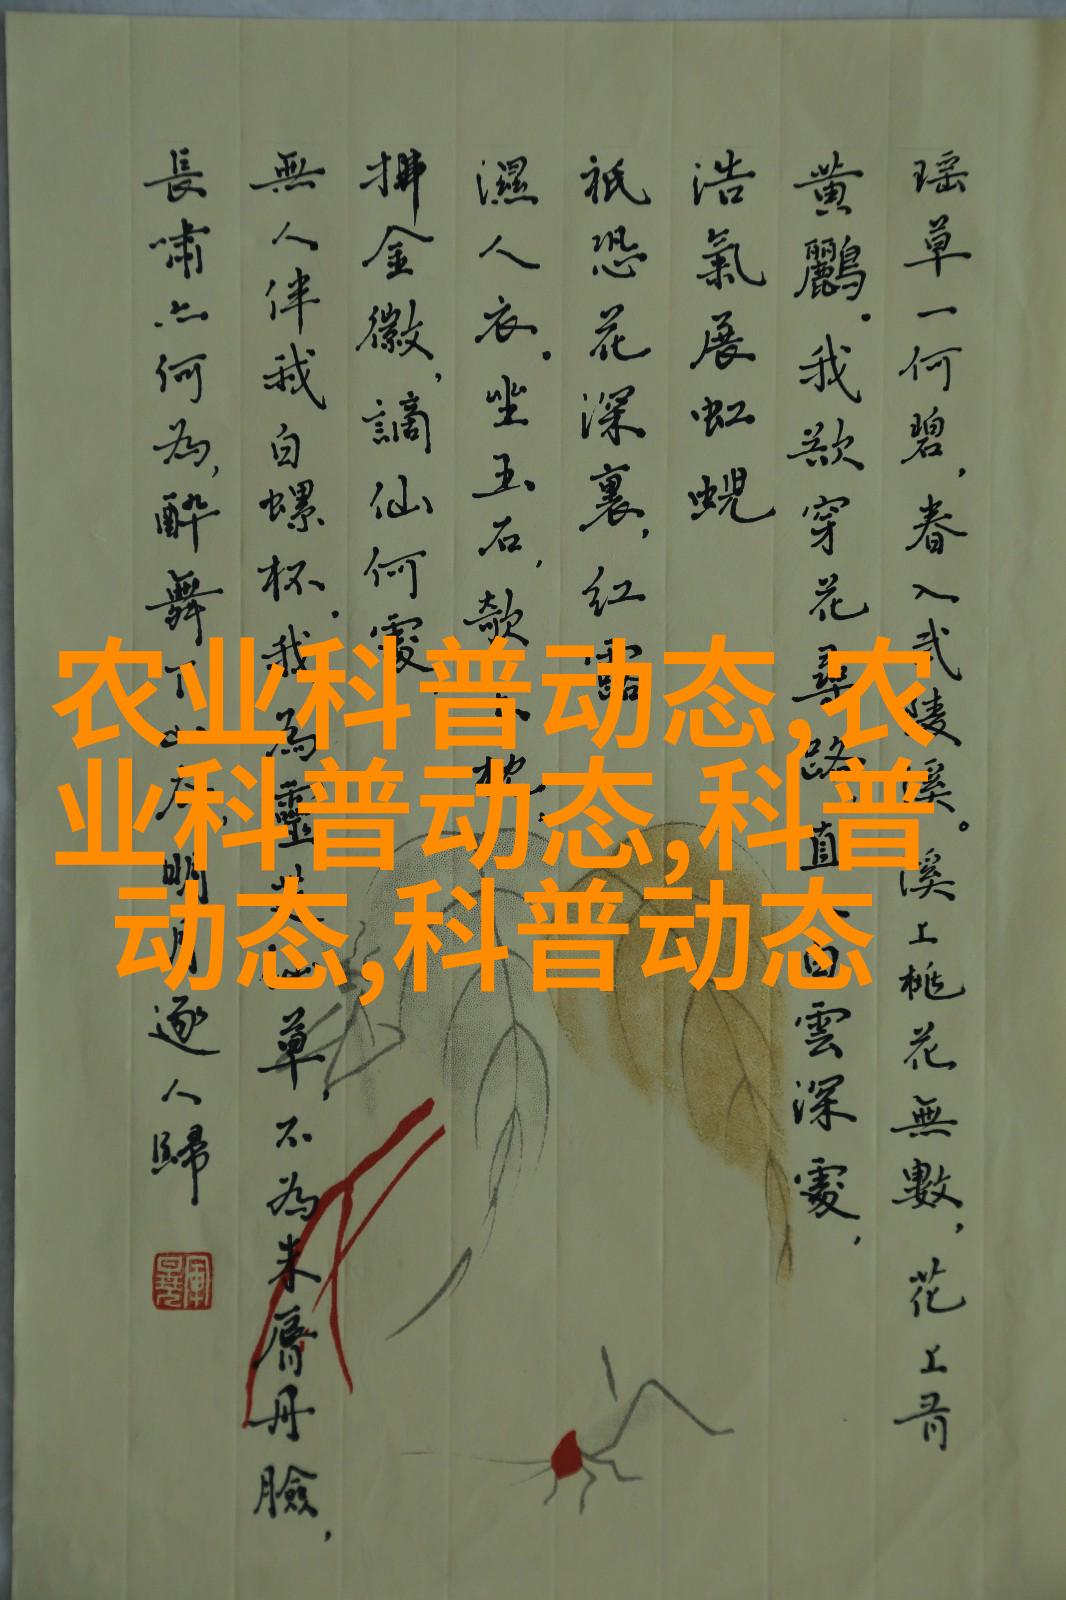 瑶草一何碧，春入武陵溪。溪上桃花無數，花上有
黄鸝。我欲穿花尋路，直入白雲深處，
浩氣展虹蜺
祇恐花深裏，红露
濕人衣。坐玉石，欹玉枕，
拂金徽，謫仙何處
無人伴我白螺杯。我為靈芝仙草，不為朱脣丹臉，
長嘯亦何為，醉舞下山去，明月逐人歸
农业科普动态,农
业科普动态,科普
动态,科普动态